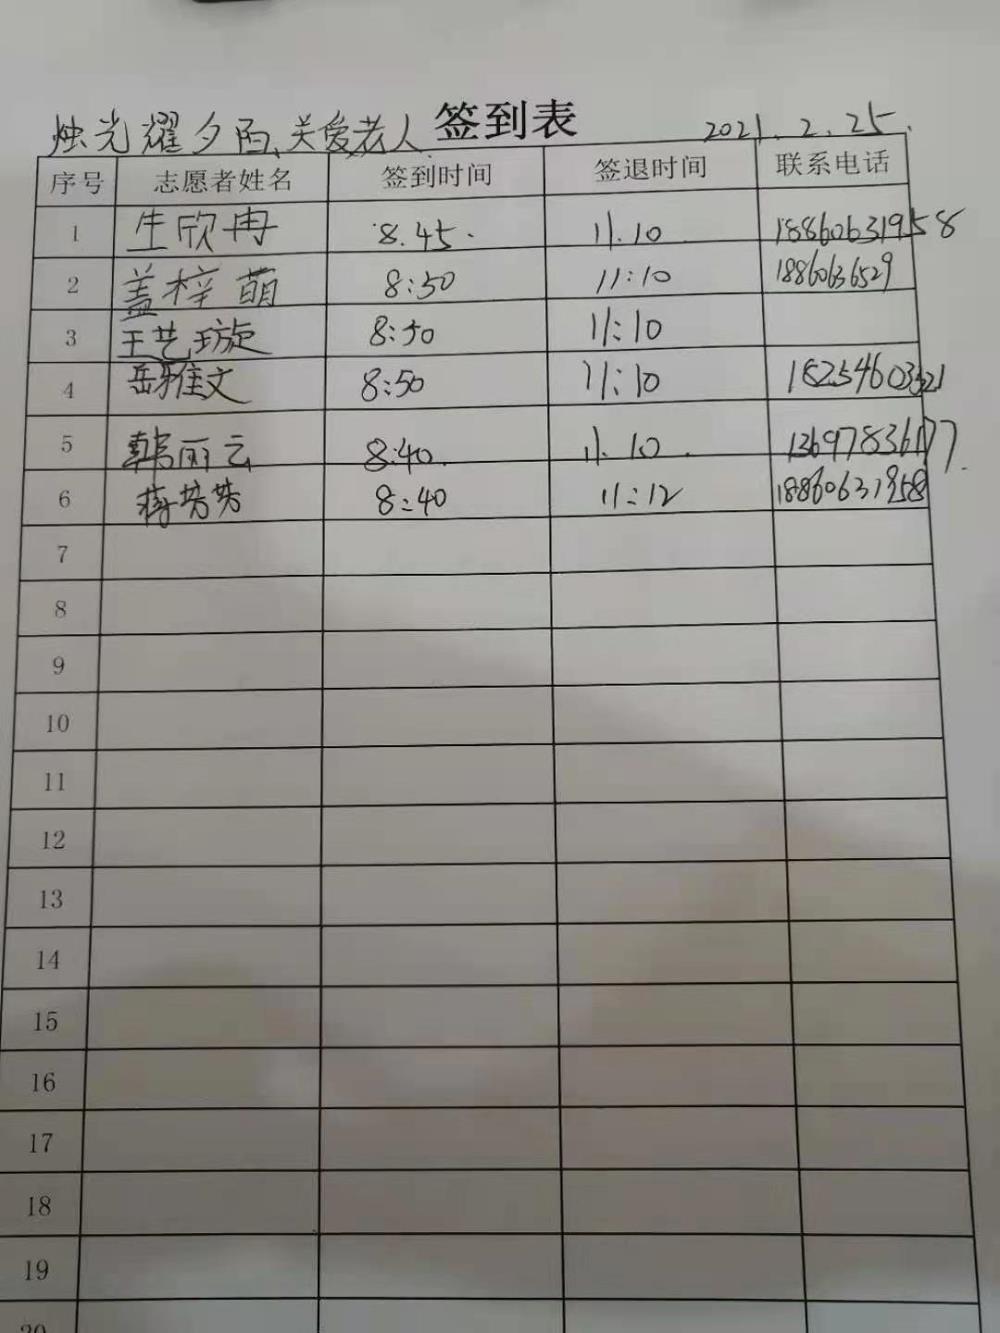 烛光耀夕陌、关爱老人 签到表 2021.2.25.
序号 志愿者姓名 签到时间 签退时间 联系电话
1 生欣冉 8.45. 11.10 18860631958
2 盖梓萌 8:50 11:10 18860636529
3 王艺璇 8:50 11:10
4 岳雅文 8:50 11:10 18254603521
5 韩丽云 8:40. 11.10. 13697836177.
6 蒋芳芳 8:40 11:12 18860631958
7
8
9
10
11
12
13
14
15
16
17
18
19
20